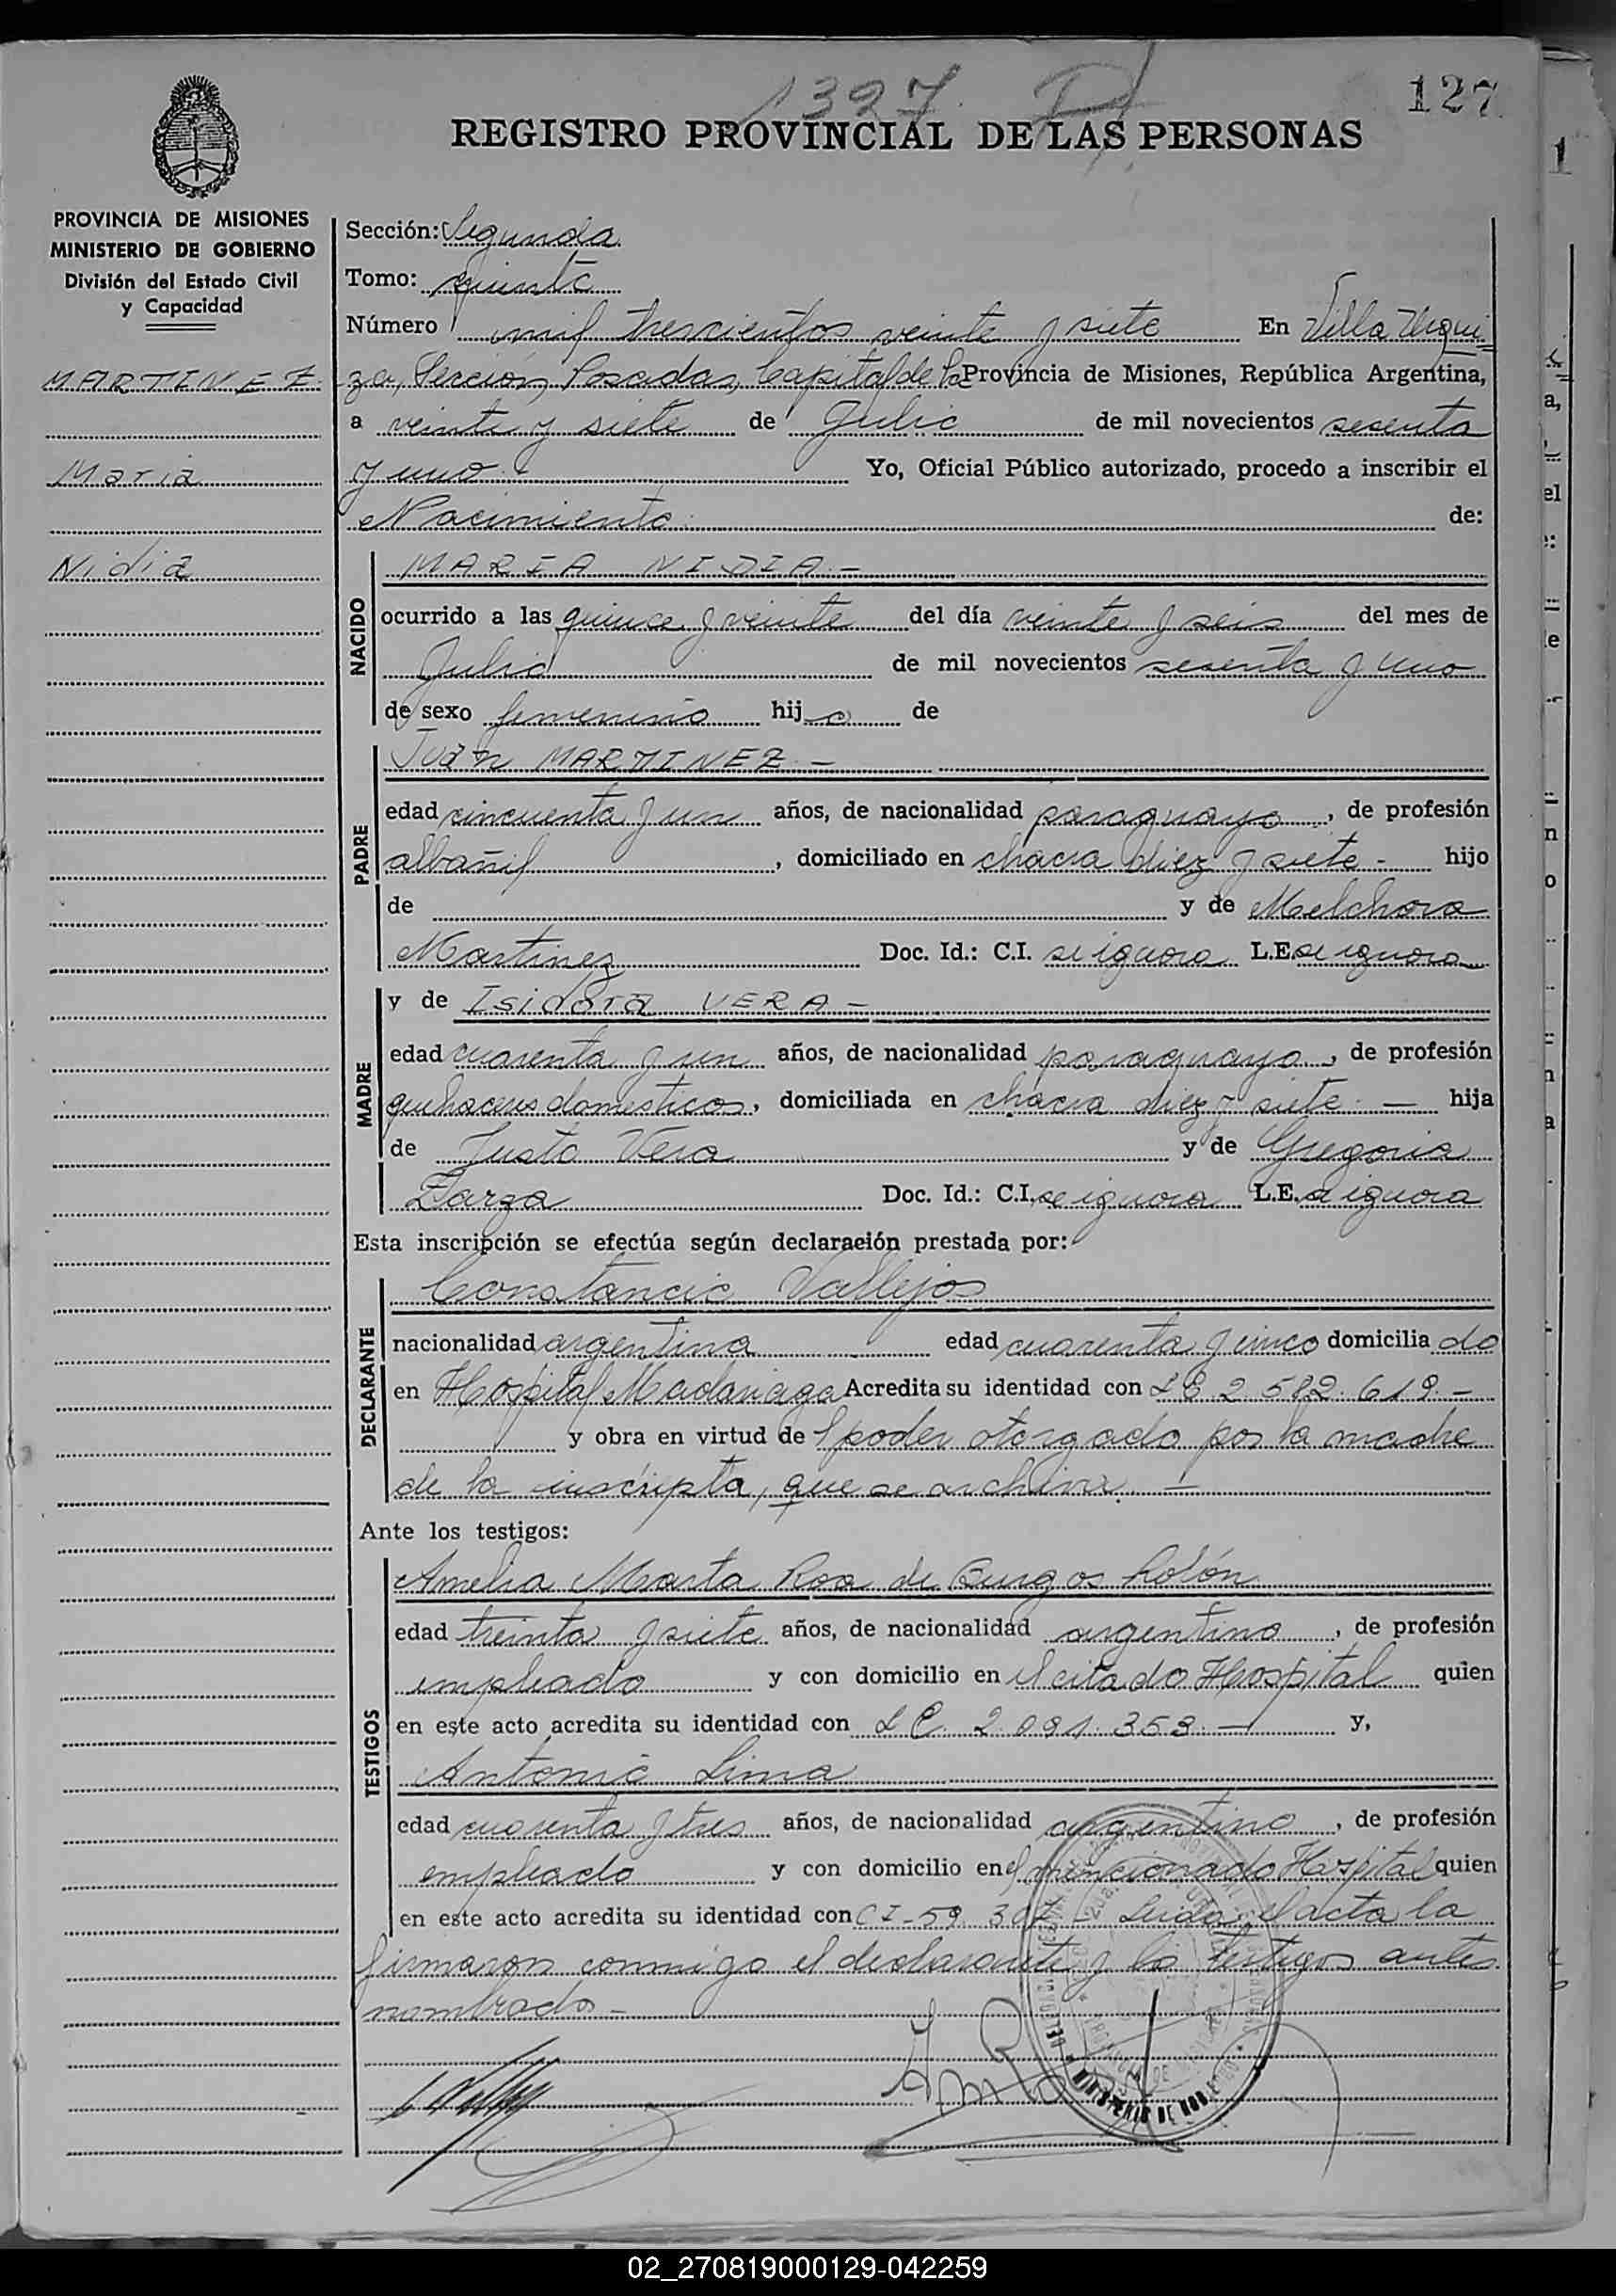 1327
127
REGISTRO PROVINCIAL DE LAS PERSONAS
PROVINCIA DE MISIONES
MINISTERIO DE GOBIERNO
División del Estado Civil
y Capacidad
MARTINEZ
Maria
Nidia
Sección: Segunda
Tomo: quinto
Número mil trescientos veinte y siete En Villa Urqui=
za, Sección, Posadas, Capital de la Provincia de Misiones, República Argentina,
a veinte y siete de Julio de mil novecientos sesenta
y uno.- Yo, Oficial Público autorizado, procedo a inscribir el
Nacimiento de:
NACIDO
MARIA NIDIA.-
ocurrido a las quince y veinte del día veinte y seis del mes de
Julio de mil novecientos sesenta y uno
de sexo femenino hija de
PADRE
Juan MARTINEZ.-
edad cincuenta y un años, de nacionalidad paraguayo, de profesión
albañil, domiciliado en chacra diez y siete- hijo
de y de Melchora
Martinez Doc. Id.: C.I. se ignora L.E. se ignora
MADRE
y de Isidora VERA-
edad cuarenta y un años, de nacionalidad paraguaya, de profesión
quehaceres domesticos, domiciliada en chacra diez y siete.- hija
de Justo Vera y de Gregoria
Zarza Doc. Id.: C.I. se ignora L.E. se ignora
Esta inscripción se efectúa según declaración prestada por:
DECLARANTE
Constancio Vallejos
nacionalidad argentina edad cuarenta y cinco domiciliado
en Hospital Madariaga Acredita su identidad con LE 2 582 619.-
y obra en virtud de l poder otorgado por la madre
de la inscripta, que se archiva.-
Ante los testigos:
TESTIGOS
Amelia Marta Roa de Burgos Colón
edad treinta y siete años, de nacionalidad argentina, de profesión
empleado y con domicilio en el citado Hospital quien
en este acto acredita su identidad con LC 2.091.353.- y,
Antonio Lima
edad cuarenta y tres años, de nacionalidad argentino, de profesión
empleado y con domicilio en el mencionado Hospital quien
en este acto acredita su identidad con CI-59 307- Leida el acta la
firmaron conmigo el declarante y los testigos antes
nombrados-
MINISTERIO DE GOBIERNO
02_270819000129-042259